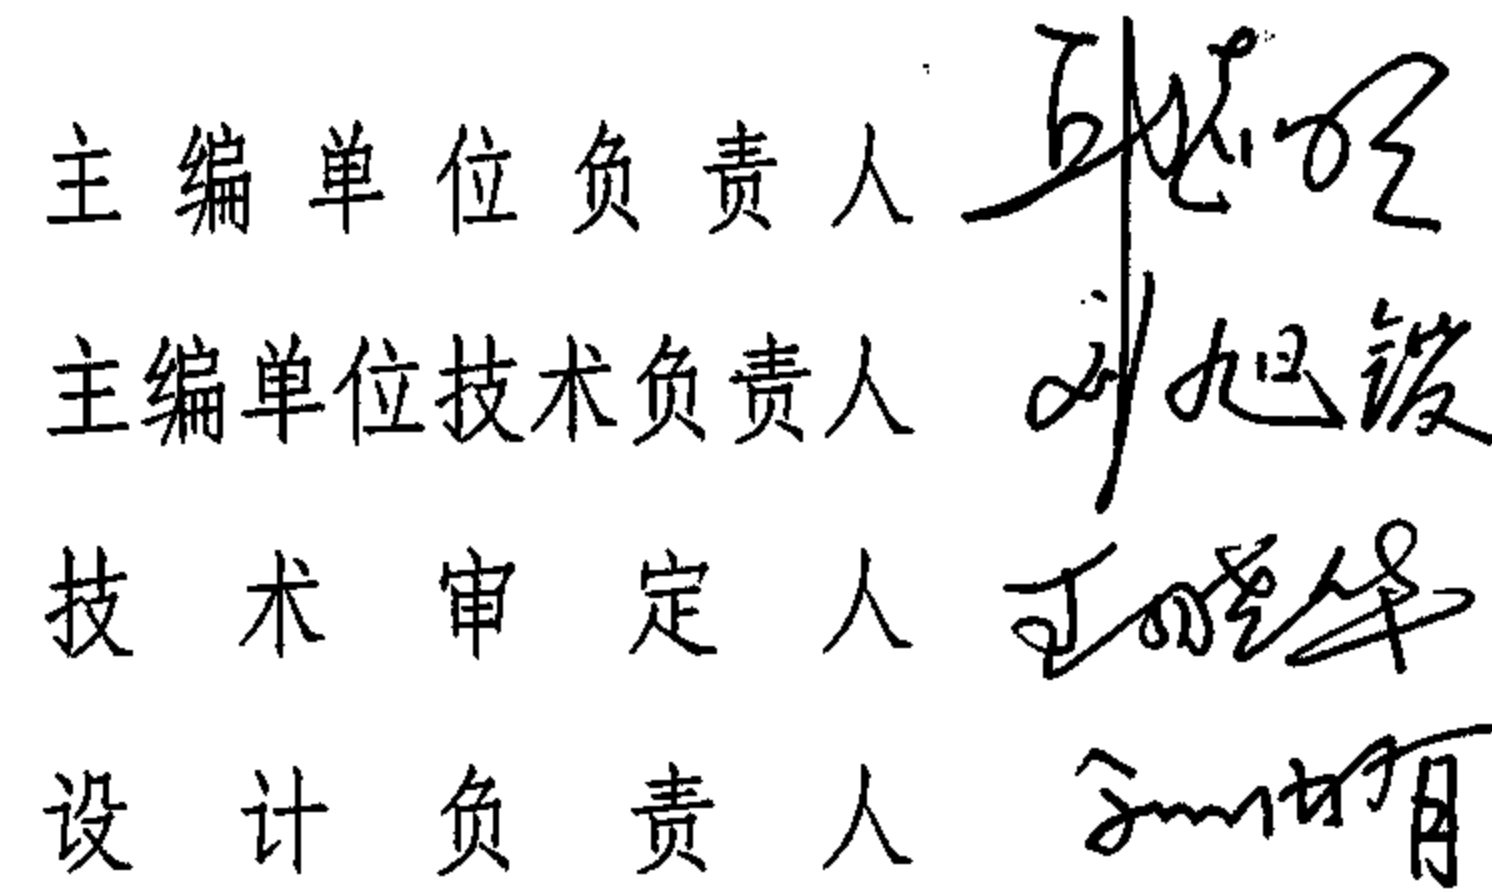 主编单位负责人
主编单位技术负责人 刘旭锬
技术审定人 王晓华
设计负责人